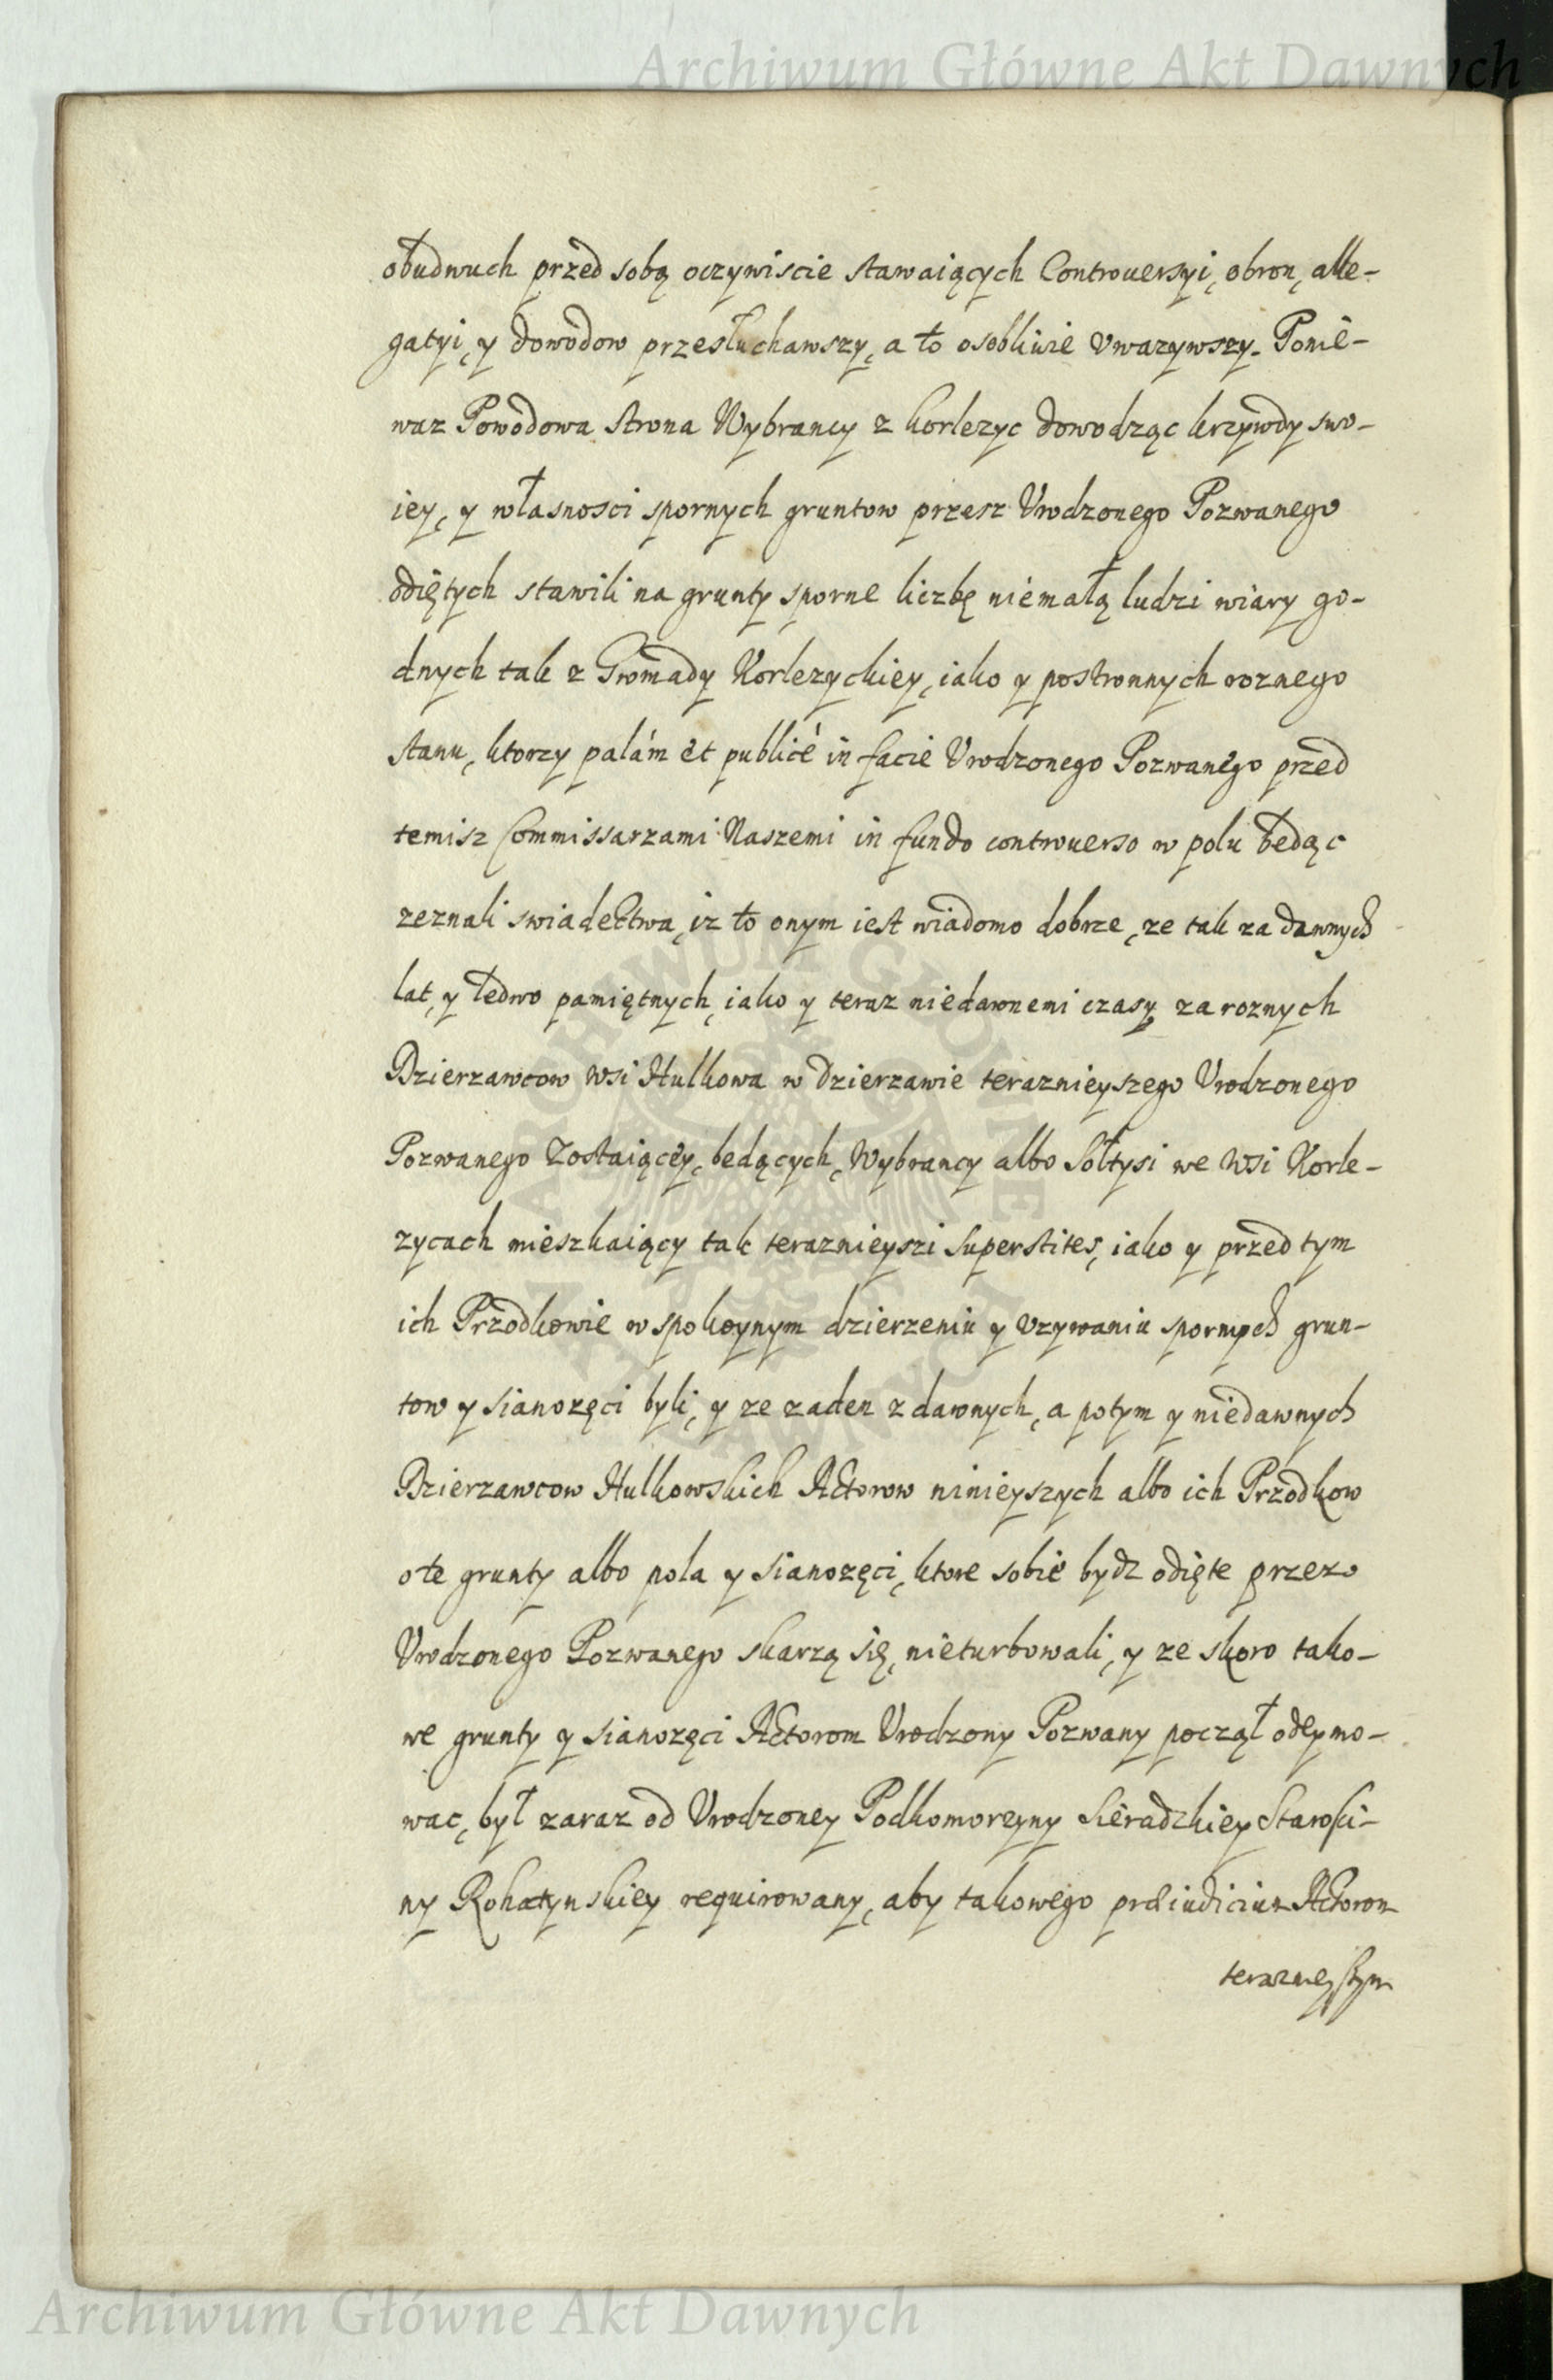 Archiwum Główne Akt Dawnych
obudwuch przed sobą oczywiscie stawaiących Controuersyi, obron, alle-
gatyi, y dowodow przesłuchawszy, a to osobliwie vwazywszy. Ponie-
waz Powodowa strona Wybrancy z korlezyc dowodząc krzywdy swo-
iey, y własnosci spornych gruntow przesz Vrodzonego Pozwanego
odiętych stawili na grunty sporne liczbę niemałą ludzi wiary go-
dnych tak z Gromady Korlezyckiey, iako y postronnych roznego
stanu, ktorzy palám et publicè in facie Vrodzonego Pozwanego przed
temisz Commissarzami Naszemi in fundo controuerso w polu będąc
zeznali swiadectwa, iz to onym iest wiadomo dobrze, ze tak za dawnych
lat, y ledwo pamiętnych, iako y teraz niedawnemi czasy za roznych
Dzierzawcow wsi Hulkowa w dzierzawie terazniejszego Vrodzonego
Pozwanego Zostaiącey, bedących, Wybrancy albo Sołtysi we Wsi Korle-
zycach mieszkaiący tak teraznieyszi superstites, iako y przed tym
ich Przodkowie w spokoynym dzierzeniu y vzywaniu spornych grun-
tow y sianozęci byli, y ze zaden z dawnych, a potym y niedawnych
Dzierzawcow Hulkowskich Actorow ninieyszych albo ich Przodkow
o te grunty albo pola y sianozęci, ktore sobie bydz odięte przez
Vrodzonego Pozwanego skarzą się, nieturbowali, y ze skoro tako-
we grunty y sianozęci Actorom Vrodzony Pozwany począł odeymo-
wac, był zaraz od Vrodzoney Podkomorzyny Sieradzkiey Starosci-
ny Rohatynskiey requirowany, aby takowego præiudicium Actorom
teraznieyszym
Archiwum Główne Akt Dawnych